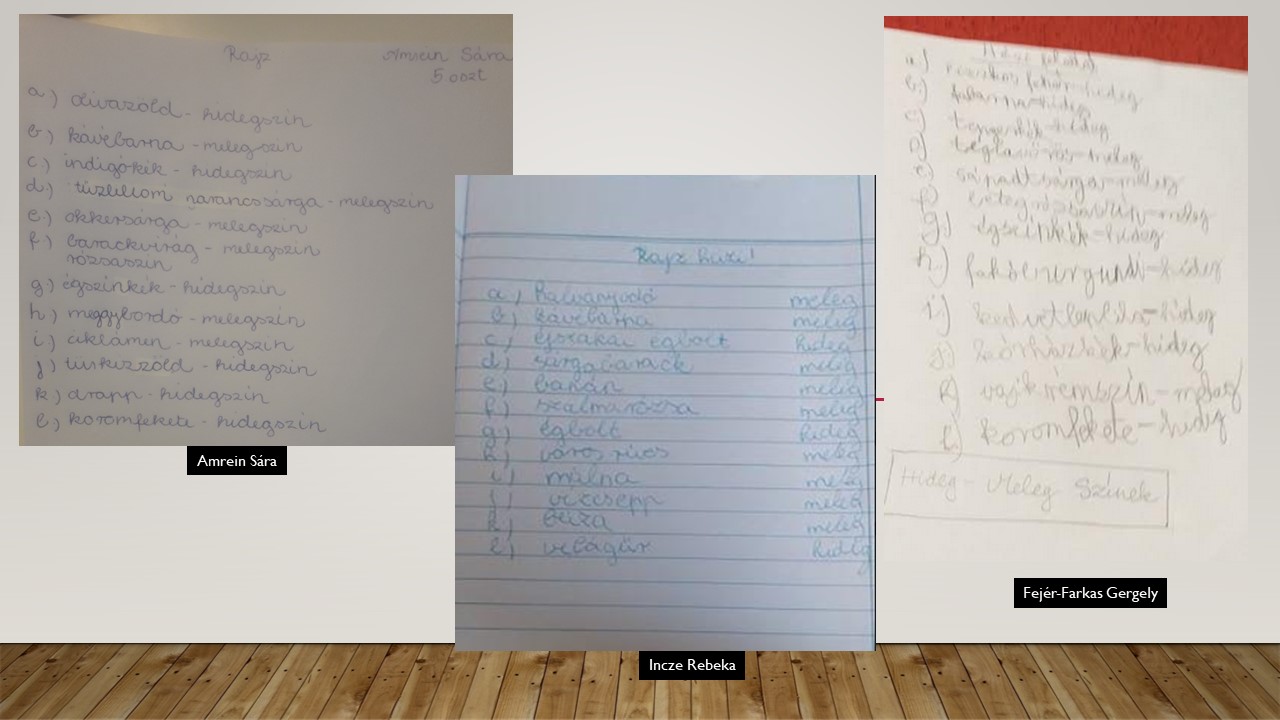 Rajz
Amrein Sára
5. oszt
a) olivazöld - hidegszín
b) kávébarna - melegszín
c) indigókék - hidegszín
d) tűzliliom narancssárga - melegszín
e) okkersárga - melegszín
f) barackvirág - melegszín
rózsaszín
g) égszínkék - hidegszín
h) meggybordó - melegszín
i) ciklámen - melegszín
j) türkizzöld - hidegszín
k) drapp - hidegszín
l) koromfekete - hidegszín
Amrein Sára
Rajz házi!
a) meleg
b) kávébarna meleg
c) éjszakai égbolt hideg
d) sárgabarack meleg
e) banán meleg
f) szalmarózsa meleg
g) égbolt hideg
h) meleg
i) málna meleg
j) vízcsepp meleg
k) búza meleg
l) világűr hideg
Incze Rebeka
a) fehér-hideg
b) hideg
c) hideg
d) téglavörös-meleg
e) sápadt sárga-meleg
f) meleg
g) égszínkék-hideg
h) hideg
i) hideg
j) kórházkék-hideg
k) vajkrémszín-meleg
l) koromfekete-hideg
Hideg - Meleg Színek
Fejér-Farkas Gergely